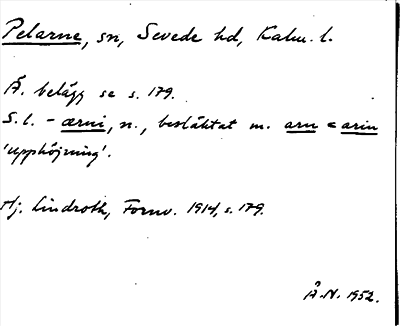 Pelarne, sn, Sevede hd, Kalm. l.
Ä. belägg se s. 179.
S. l. - ærni, n., besläktat m. arn = arin
'upphöjning'.
Hj. Lindroth, Fornv. 1914, s. 179.
Å. N. 1952.